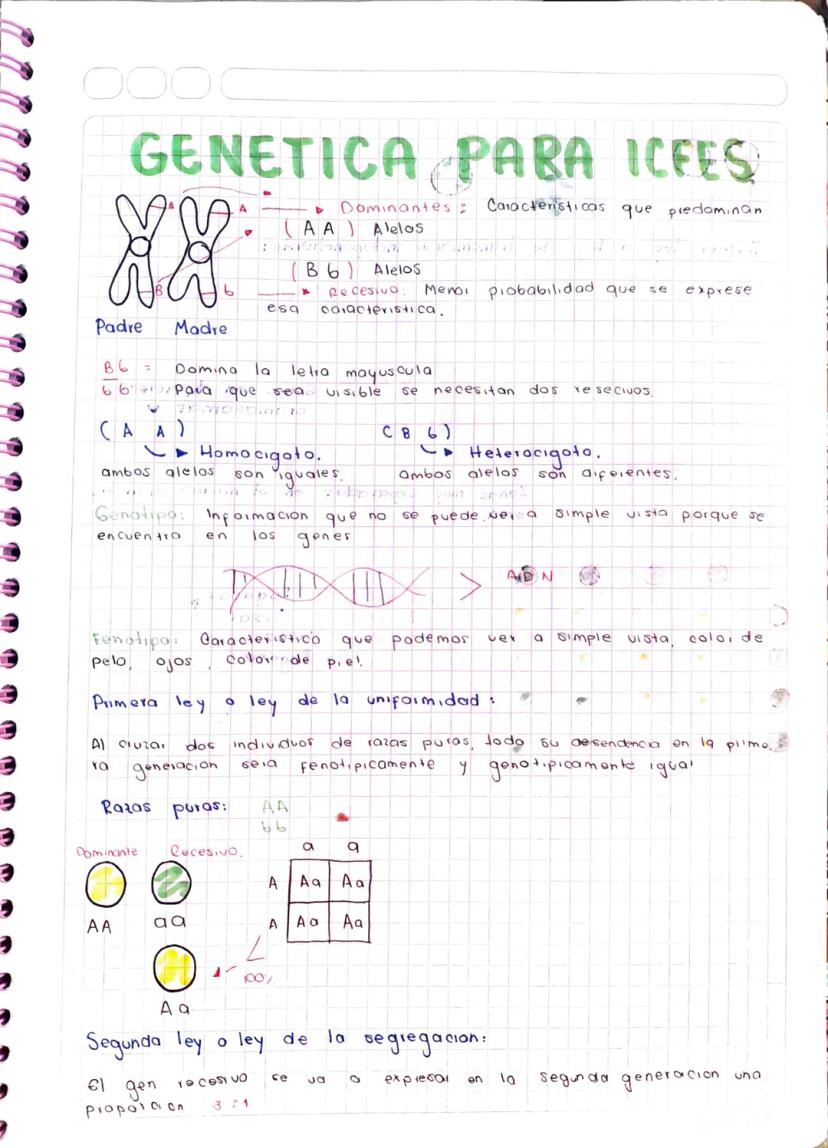 GENETICA PARA ICFES
A A Dominantes: Caracteristicas que predominan
(A A) Alelos
(B b) Alelos
B b Recesivo: Menor probabilidad que se exprese
esa caracteristica.
Padre Madre
Bb = Domina la letra mayuscula
bb Para que sea visible se necesitan dos resecivos.
(A A) (B b)
Homocigoto. Heterocigoto.
ambos alelos son iguales. Ambos alelos son diferentes.
Genotipo: Informacion que no se puede ver a simple vista porque se
encuentra en los genes
> ADN
Fenotipo: Caracteristica que podemos ver a simple vista, color de
pelo, ojos, color de piel.
Primera ley o ley de la uniformidad:
Al cruzar dos individuos de razas puras, toda su desendencia en la prime
ra generacion sera fenotipicamente y genotipicamente igual
Razas puras: AA
bb
Dominante Recesivo.
a a
A Aa Aa
AA aa
A Aa Aa
100%
Aa
Segunda ley o ley de la segregacion:
El gen recesivo se va a expresar en la segunda generacion una
proporcion 3:1